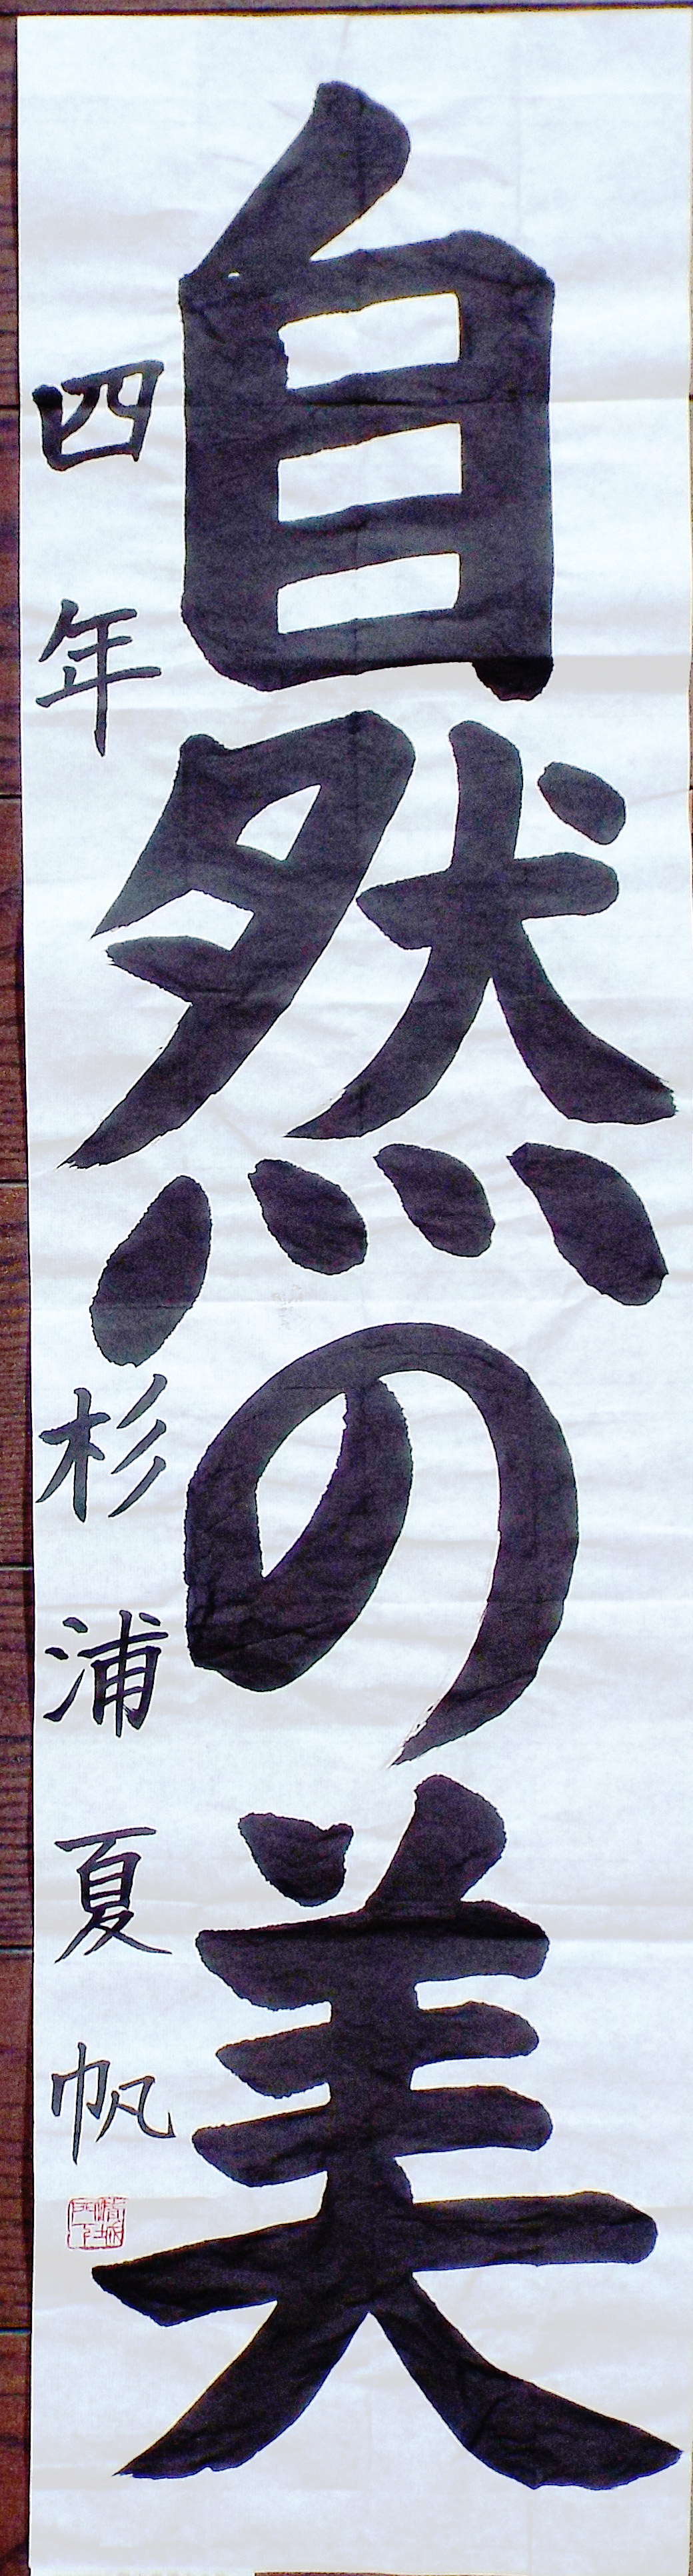 自然の美
四年 杉浦夏帆